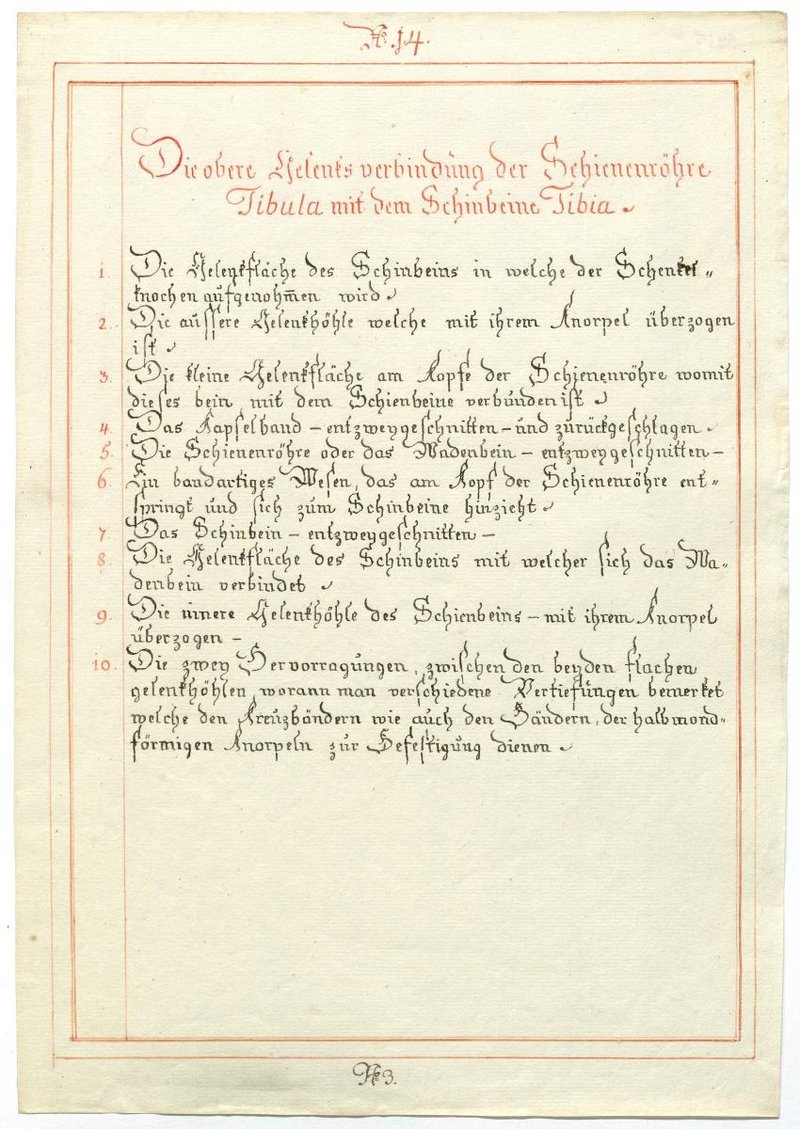 No. 14.
Die obere Gelenksverbindung der Schienenröhre
Fibula mit dem Schinbeine Tibia.
1. Die Gelenkfläche des Schinbeins in welche der Schenkel-
knochen aufgenohm̅en wird.
2. Die äussere Gelenkhöhle welche mit ihrem Knorpel überzogen
ist.
3. Die kleine Gelenkfläche am Kopfe der Schienenröhre womit
dieses bein mit dem Schienbeine verbunden ist.
4. Das Kapselband – entzweygeschnitten – und zurückgeschlagen.
5. Die Schienenröhre oder das Wadenbein – entzweygeschnitten –
6. Ein bandartiges Wesen, das am Kopf der Schienenröhre ent=
springt und sich zum Schinbeine hinzieht.
7. Das Schinbein – entzweygeschnitten –
8. Die Gelenkfläche des Schinbeins mit welcher sich das Wa-
denbein verbindet.
9. Die innere Gelenkhöhle des Schienbeins – mit ihrem Knorpel
überzogen –
10. Die zwey Hervorragungen, zwischen den beyden flachen
gelenkhöhlen, worann man verschiedene Vertiefungen bemerket
welche den Kreuzbändern wie auch den Bändern, der halbmond=
förmigen Knorpeln zur Befestigung dienen.
No 3.